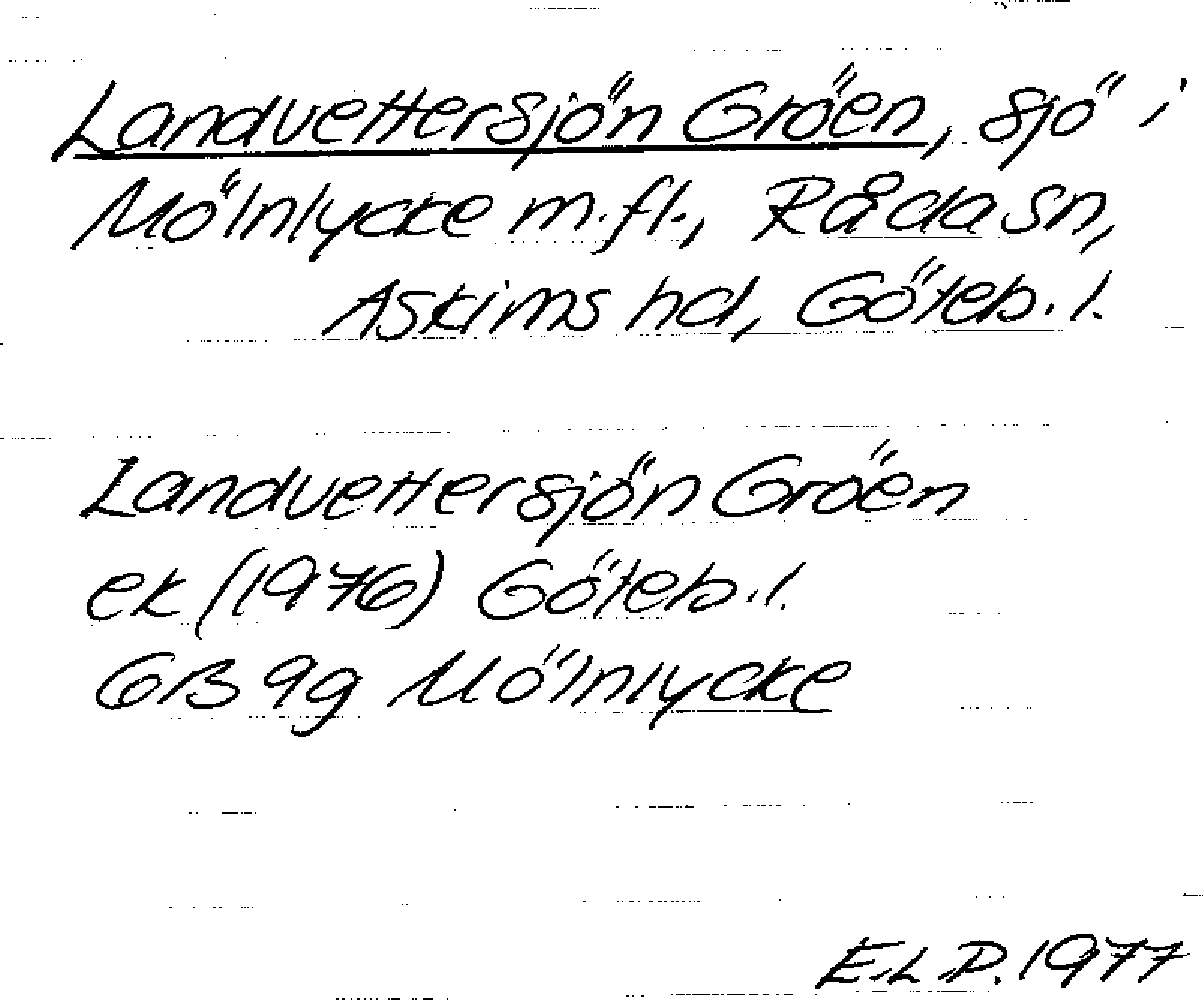 Landvettersjön Gröen, sjö i
Mölnlycke m.fl., Råda sn,
Askims hd, Göteb. l.
Landvettersjön Gröen
ek (1976) Göteb. l.
6B 9g Mölnlycke
E.L.P. 1977